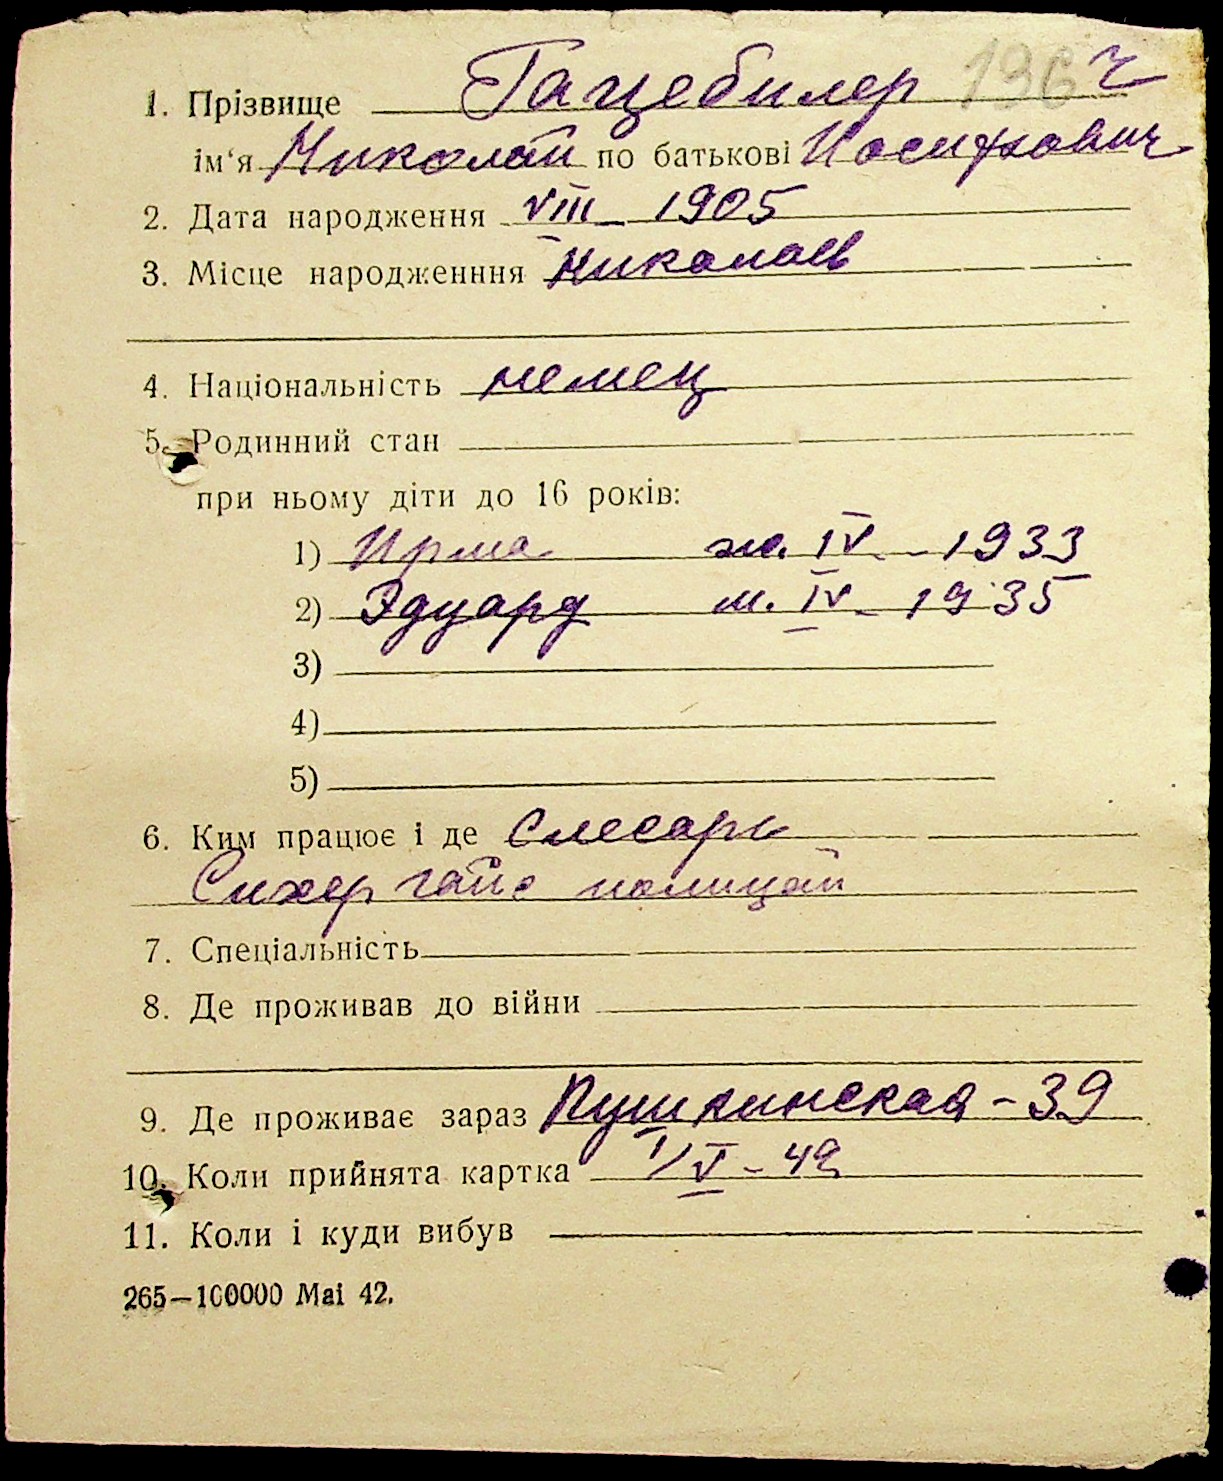 1. Прізвище Гацебилер 136 ч
ім‘я Николай по батькові Иосифович
2. Дата народження VIII 1905
3. Місце народженння Николаев
4. Національність немец
5. Родинний стан
при ньому діти до 16 років:
1) Ирма ж. IV - 1933
2) Эдуард м. IV - 1935
3)
4)
5)
6. Ким працює і де Слесарь
Сихергайс полицай
7. Спеціальність
8. Де проживав до війни
9. Де проживає зараз Пушкинская - 39
10. Коли прийнята картка 1/V - 42
11. Коли і куди вибув
265—100000 Mai 42.